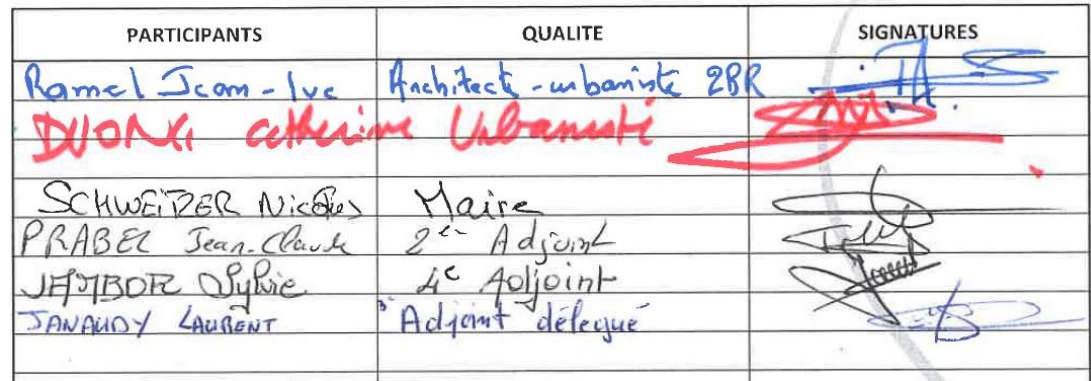 PARTICIPANTS QUALITE SIGNATURES
Ramel Jean-Yve Architecte-urbaniste 2BR
DUONG Catherine Urbaniste
SCHWEITZER Nicolas Maire
PRABEL Jean-Claude 2e Adjoint
JAMBOR Sylvie 4e Adjoint
JANAUDY LAURENT 3e Adjoint délégué